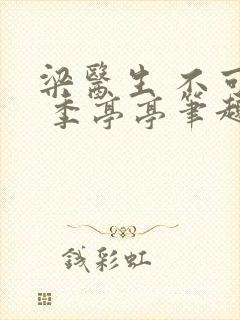 梁醫生 不可
季亭亭筆趣
錢彩虹